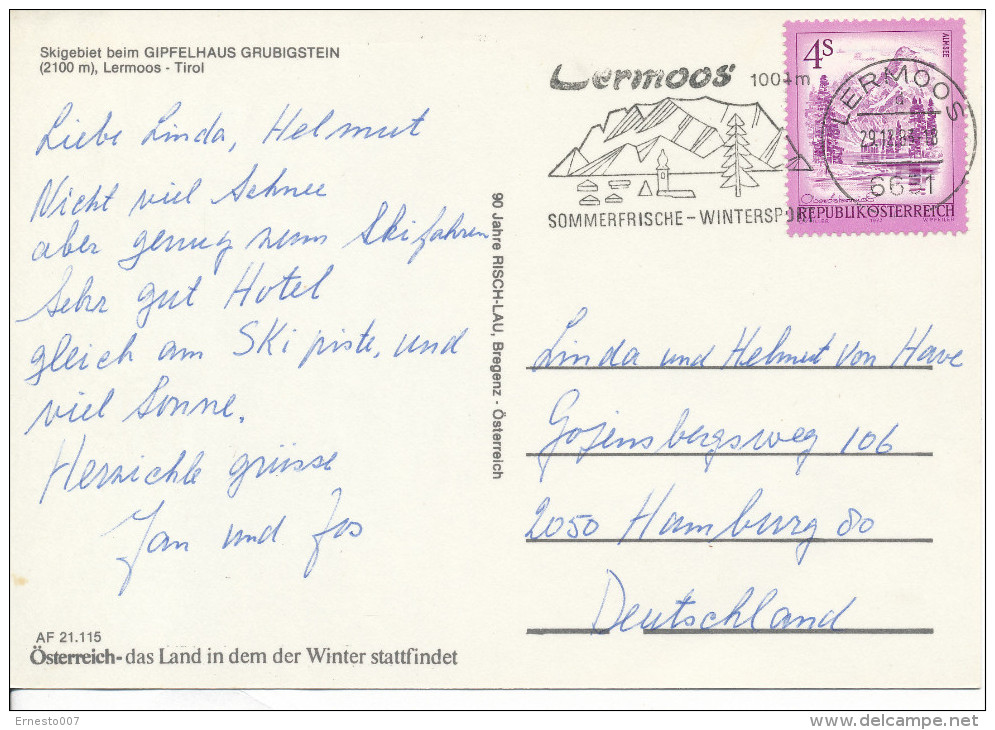 Skigebiet beim GIPFELHAUS GRUBIGSTEIN
(2100 m), Lermoos - Tirol
Liebe Linda, Helmut
Nicht viel Schnee
aber genug zum Ski fahren
Sehr gut Hotel
gleich am Ski piste, und
viel Sonne.
Herzichle grüsse
Jan und Jos
AF 21.115
Österreich- das Land in dem der Winter stattfindet
90 Jahre RISCH-LAU, Bregenz - Österreich
Lermoos 1004m
SOMMERFRISCHE-WINTERSPORT
4S
ALMSEE
REPUBLIK ÖSTERREICH
LERMOOS
Linda und Helmut Von Have
Gojensbergsweg 106
2050 Hamburg 80
Deutschland
Ernesto007
delcampe.net